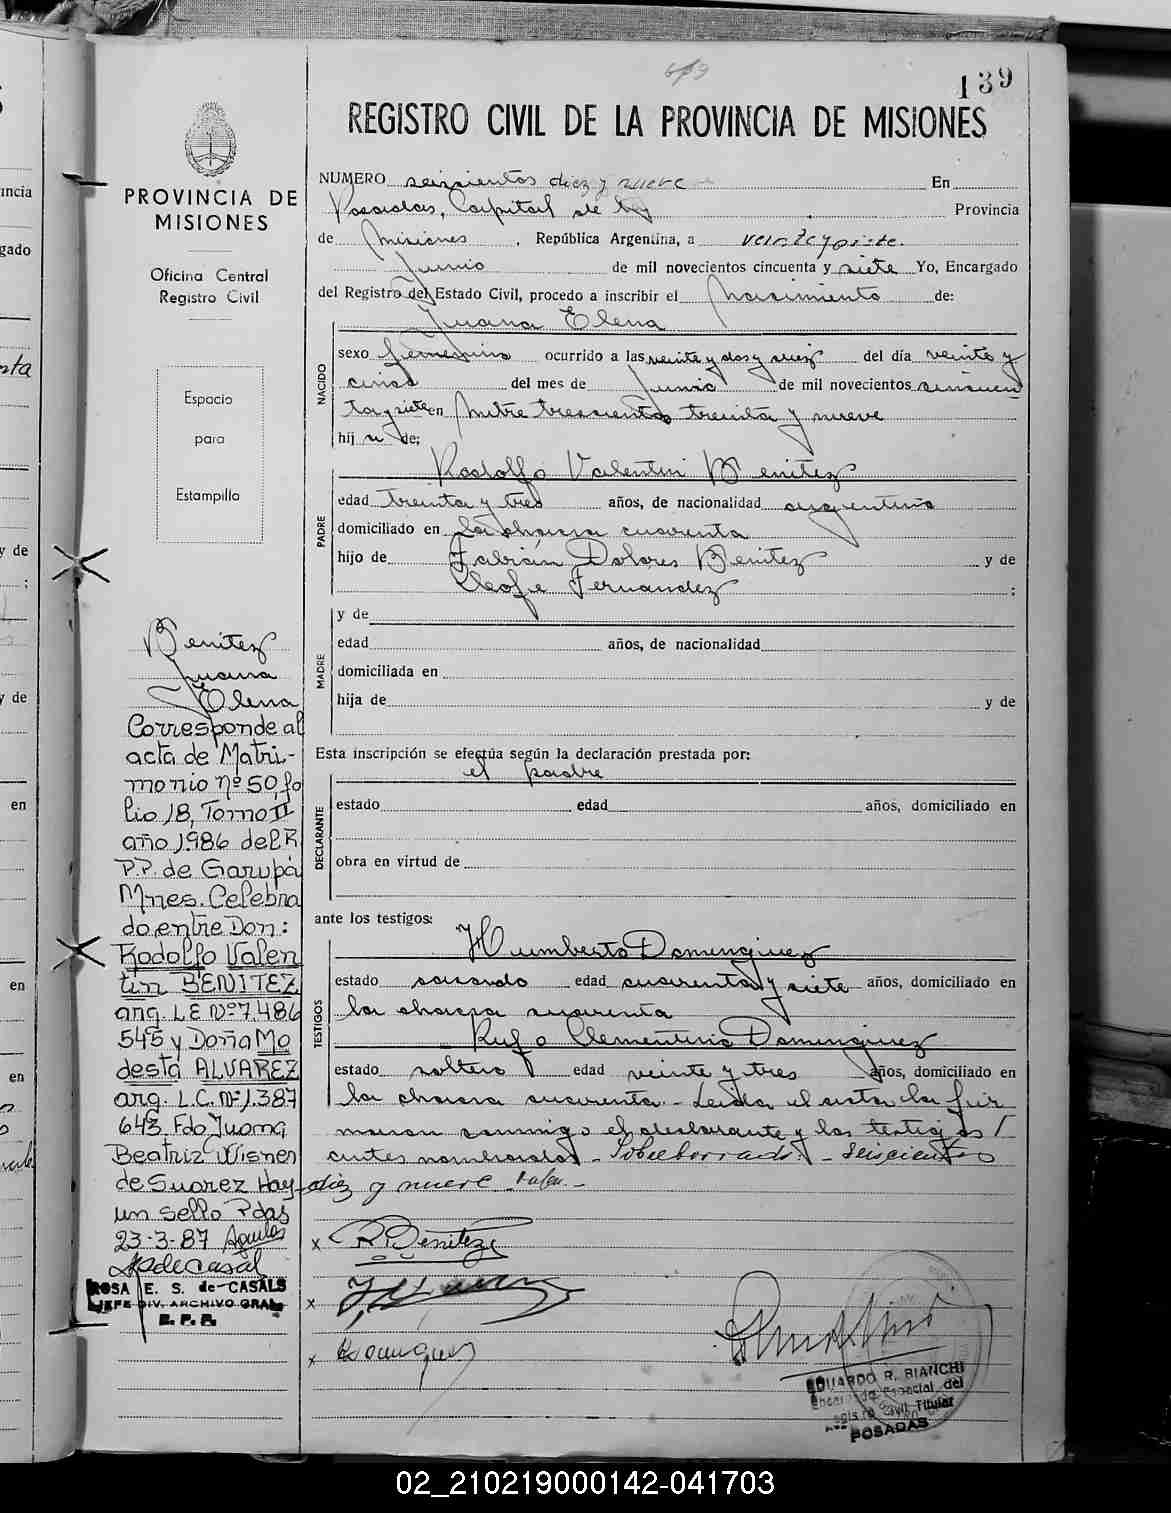 619
139
REGISTRO CIVIL DE LA PROVINCIA DE MISIONES
PROVINCIA DE
MISIONES
Oficina Central
Registro Civil
Espacio
para
Estampilla
NUMERO seiscientos diez y nueve En
Posadas, Capital de la Provincia
de Misiones, República Argentina, a veintey siete
Junio de mil novecientos cincuenta y siete Yo, Encargado
del Registro del Estado Civil, procedo a inscribir el nacimiento de:
Juana Elena
NACIDO
sexo femenino ocurrido a las veinte y dos y diez del día veinte y
cinco del mes de Junio de mil novecientos cincuen
ta y siete en Mitre trescientos treinta y nueve
hij a de:
PADRE
Rodolfo Valentin Benitez
edad treinta y tres años, de nacionalidad argentina
domiciliado en la chacra cuarenta
hijo de Fabián Dolores Benitez y de
Cleofe Fernandez :
MADRE
y de
edad años, de nacionalidad
domiciliada en
hija de y de
Esta inscripción se efectúa según la declaración prestada por:
el padre
DECLARANTE
estado edad años, domiciliado en
obra en virtud de
ante los testigos:
TESTIGOS
Humberto Dominguez
estado casado edad cuarenta y siete años, domiciliado en
la chacra cuarenta
Rufo Clementino Dominguez
estado soltero edad veinte y tres años, domiciliado en
la chacra cuarenta - Leida el acta la fir
maron conmigo el declarante y los testigos
antes nombrados - Sobreborrado - Seiscientos
diez y nueve Vale -
x R Benitez
x
x Dominguez
EDUARDO R. BIANCHI
Titular
POSADAS
Benitez
Juana
Elena
Corresponde al
acta de Matri-
monio nº 50, fo
lio 18, Tomo II
año 1986 del R
P.P. de Garupá
Mnes. Celebra
do entre Don:
Rodolfo Valen
tin BENITEZ
arg. L E Nº 7.486
545 y Doña Mo
desta ALVAREZ
arg. L.C. Nº 1.387
643 Fdo Juana
Beatriz Wisner
de Suarez Hay
un sello Pdas
23-3-87 Aguilas
de Casal
ROSA E. S. de CASALS
JEFE DIV. ARCHIVO GRAL
R. P. P.
02_210219000142-041703